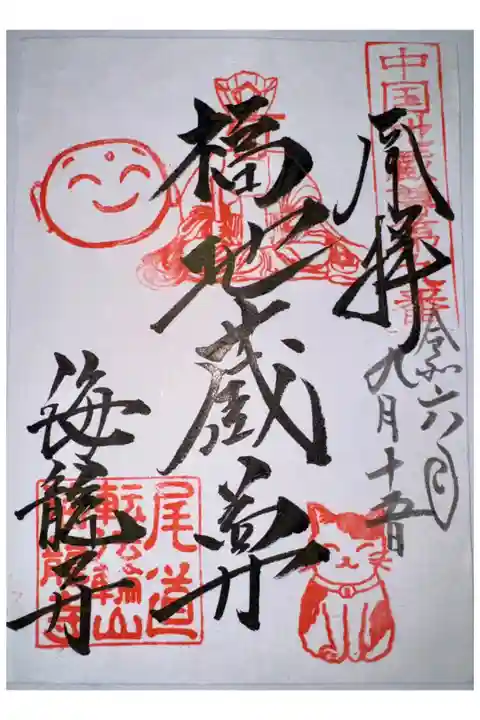 奉拝
令和六年
九月十五日
橋地蔵尊
海龍寺
尾道
転法輪山
海龍寺